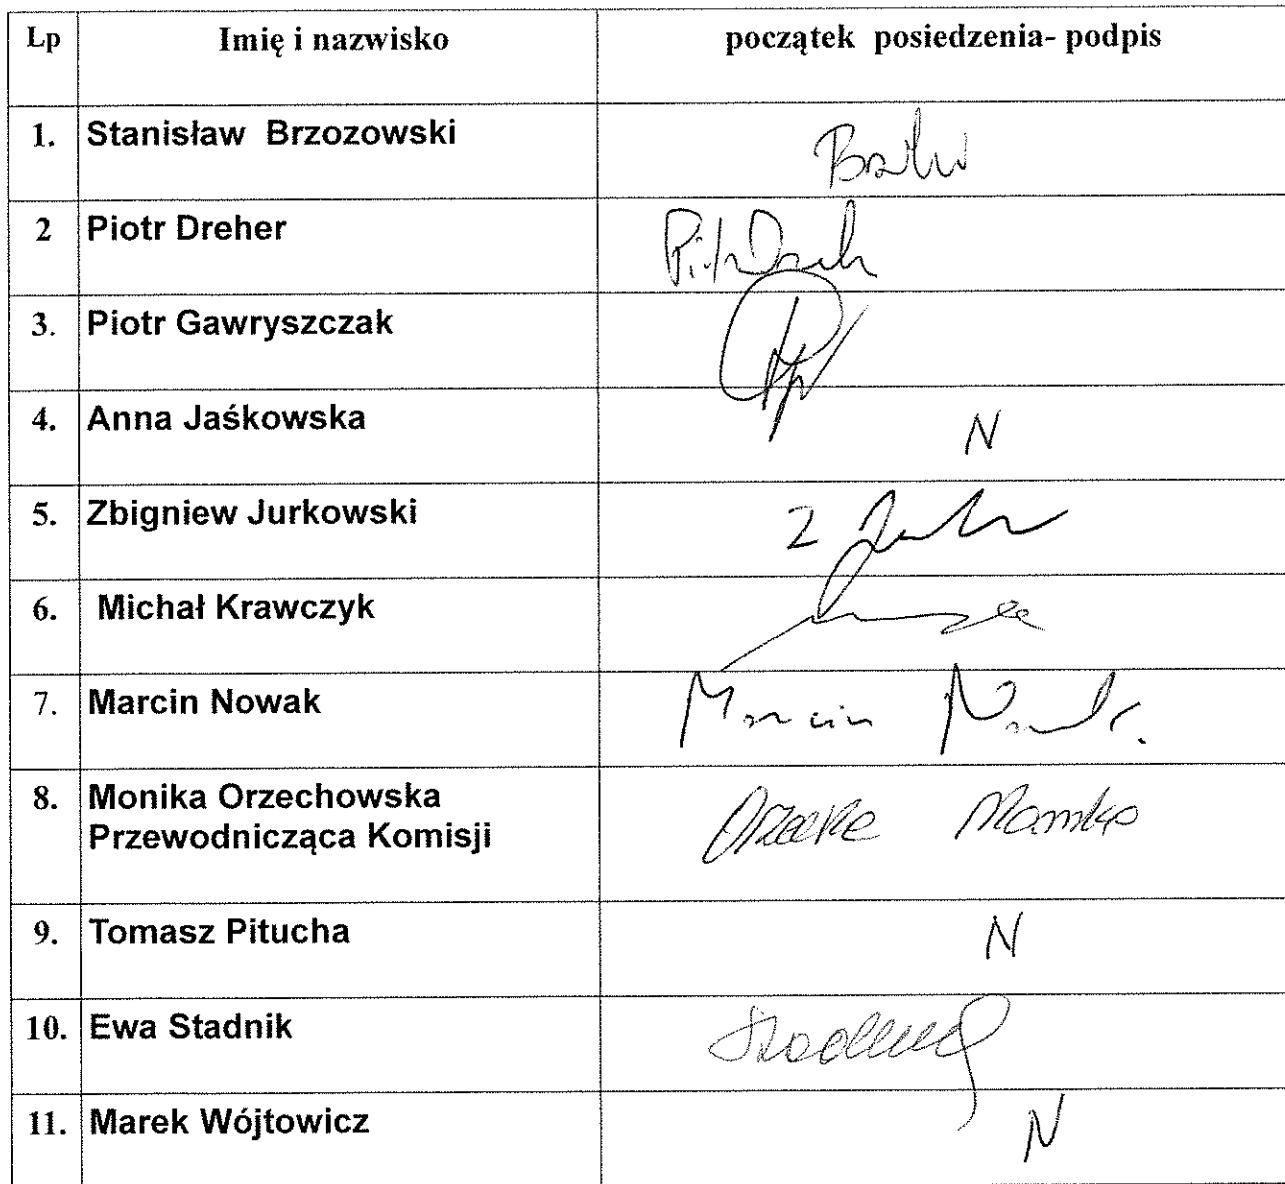 Lp Imię i nazwisko początek posiedzenia- podpis
1. Stanisław Brzozowski
2 Piotr Dreher
3. Piotr Gawryszczak
4. Anna Jaśkowska N
5. Zbigniew Jurkowski
6. Michał Krawczyk
7. Marcin Nowak Marcin Nowak
8. Monika Orzechowska
Przewodnicząca Komisji
9. Tomasz Pitucha N
10. Ewa Stadnik
11. Marek Wójtowicz N